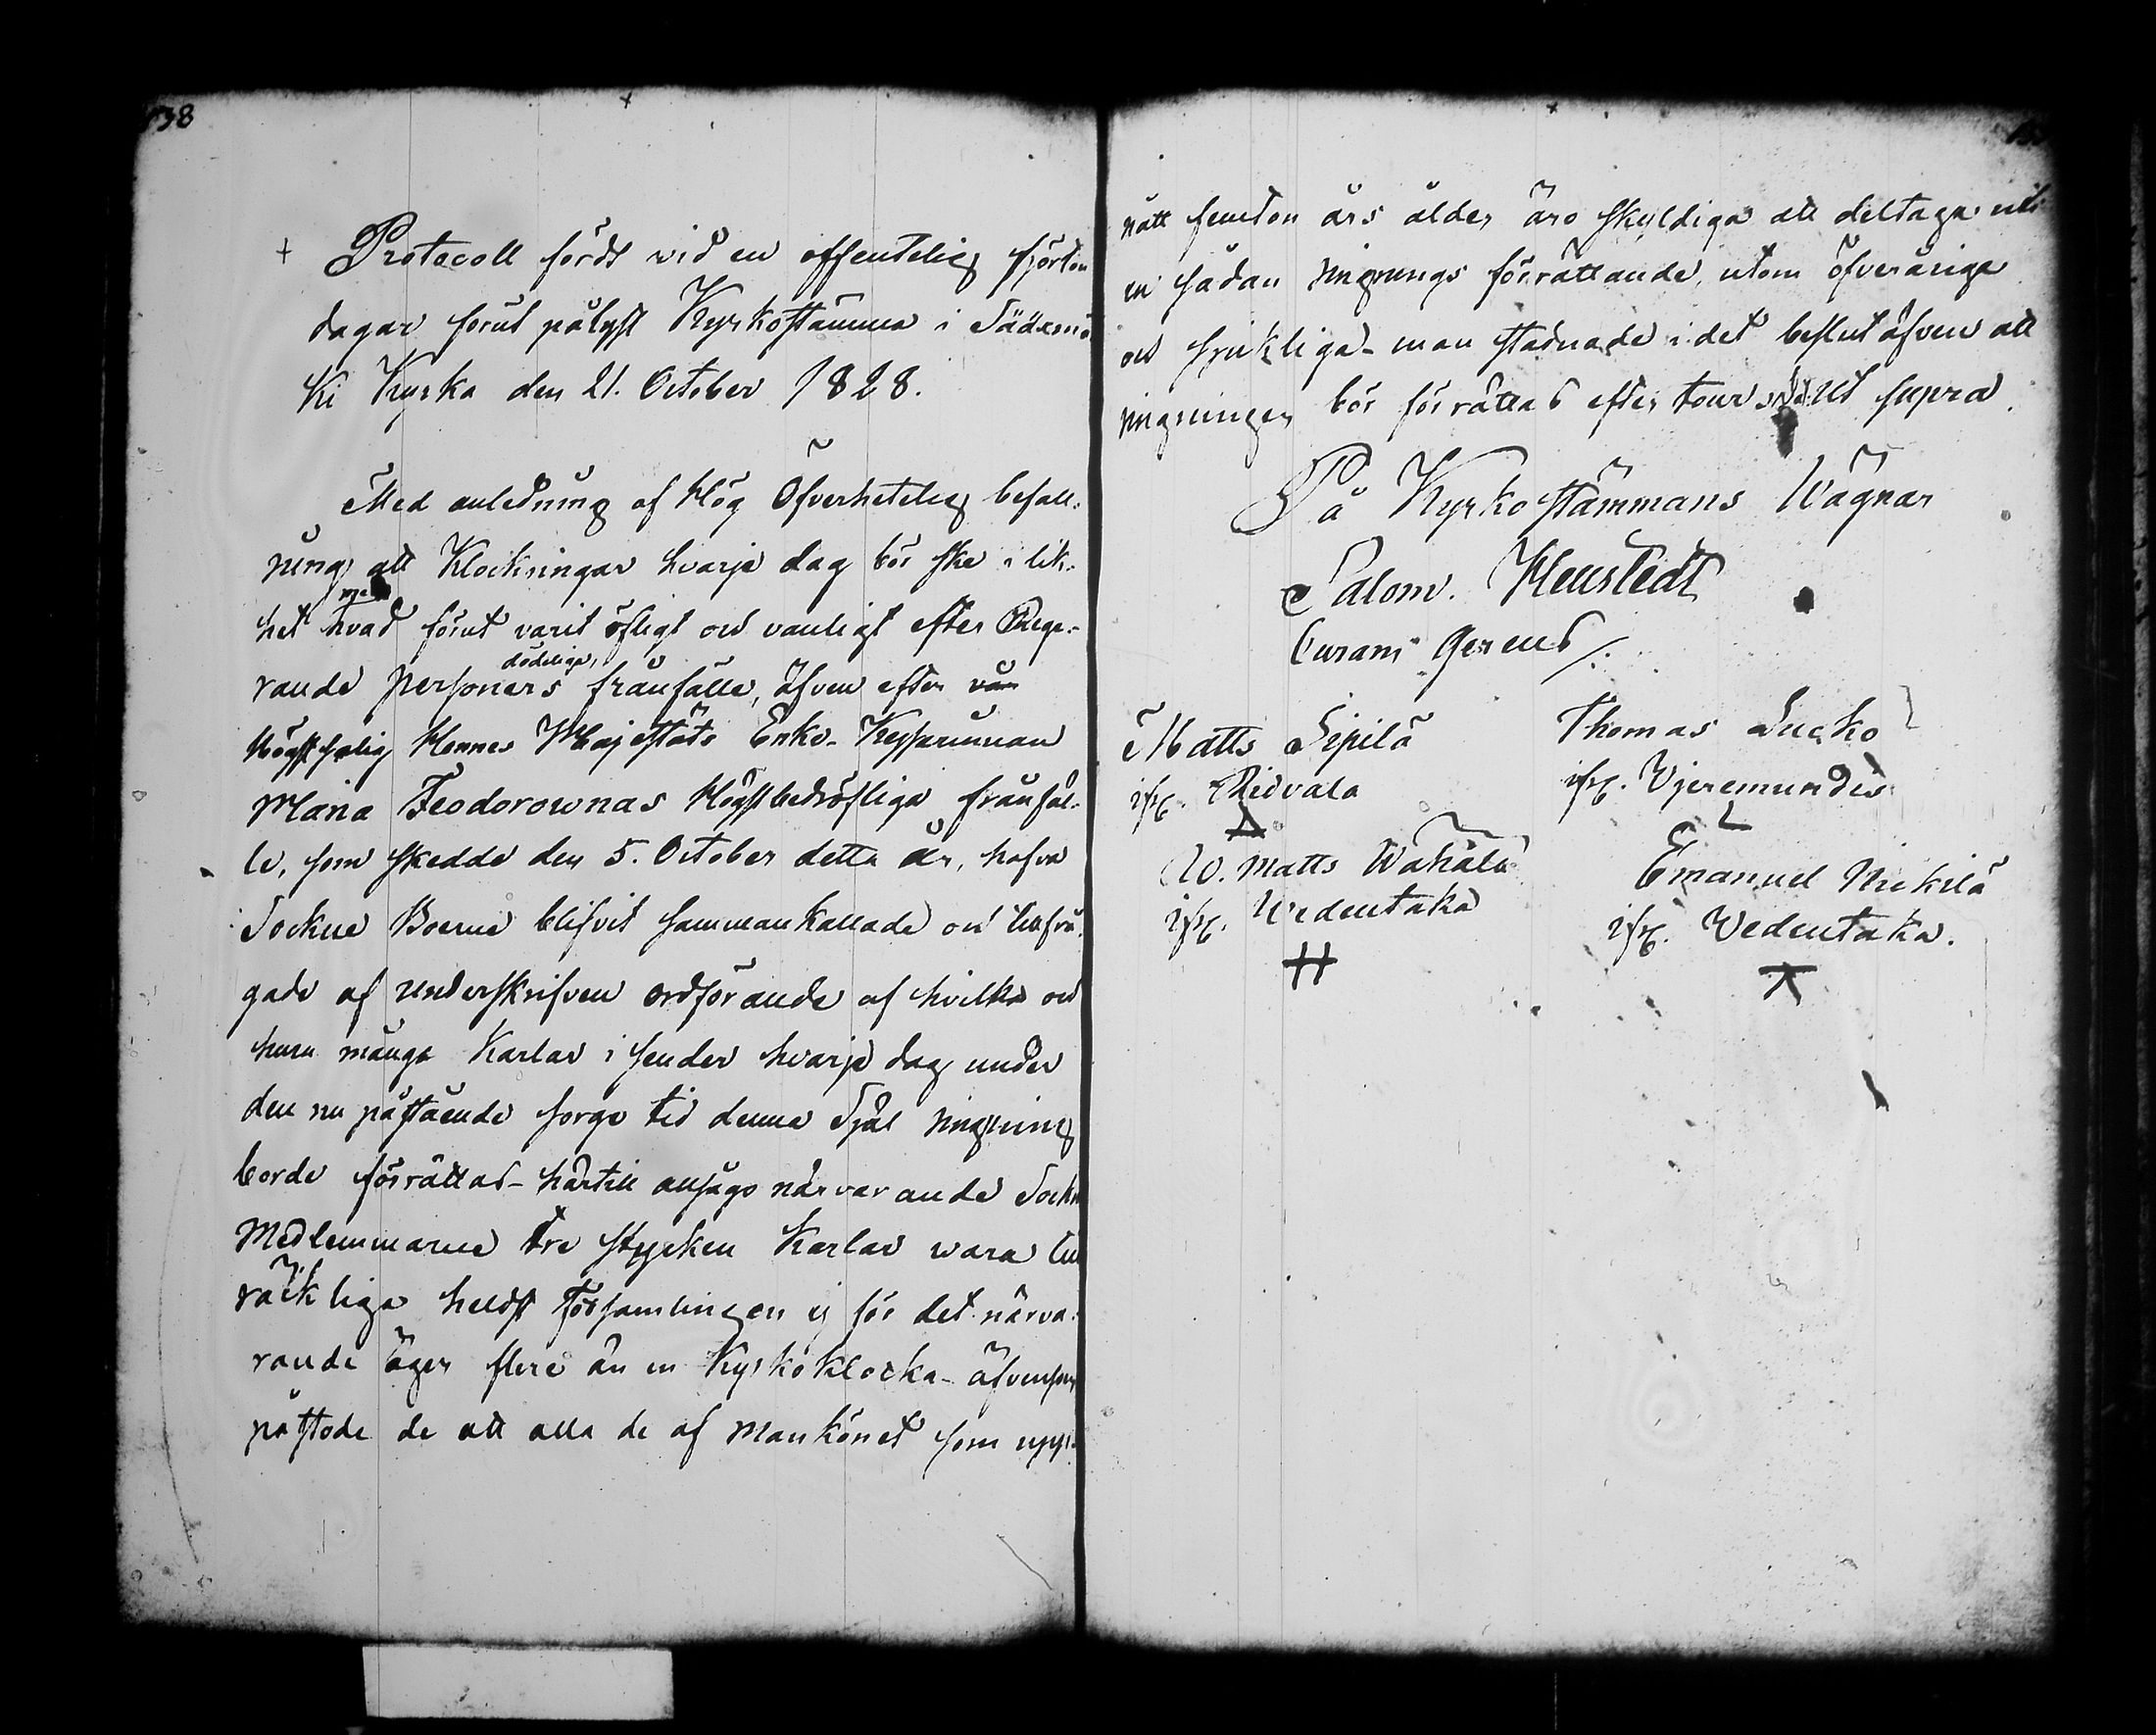 138
+ Protocoll fördt wid en offentelig fjorton
dagar förut pålyst Kyrkostämma i Sääxmä
ki Kyrka den 21. October 1828.
Med anledning af Hög Öfverhetelig befall-
ning att Klockringar hvarje dag bör ske i lik-
het med hvad förut varit öfligt och vanligt efter Rege-
rande personers dödelige frånfälle, äfven efter vår
Högstsalig Hennes Majestäts Enke-Kejsarinnan
Maria Feodorownas Högstbedröfliga frånfäl-
le, som skedde den 5. October detta år, hafva
Sockne Boerne blifvit sammankallade och tillfrå-
gade af underskrifven ordförande af hvilka och
huru många Karlar i sender hvarje dag under
den nu påstående sorge tid denna Själ ringning
borde förrättas - härtill ansågo närvarande Sockne
Medlemmarne tre stycken Karlar wara till
räckliga heldst Församlingen ej för det närva-
rande äger flere än en Kyrkoklocka - äfvensom
påstode de att alla de af Mankönet som upp-
nått femton års ålder äro skyldiga att deltaga uti
en sådan ringnings förrättande, utom öfveråriga
och sjukliga - man stadnade i det beslut äfven att
ringningen bör förrättas efter tour Ut supra.
På Kyrko stämmans Wägnar
Salom. Heustedt
Curam Gerens
Matts Sipilä
ifr. Ridvala
Thomas Sucko
ifr. Vjeremundis
W. Matts Wähälä
ifr. Wedentaka
Emanuel Nickilä
ifr. Vedentaka.